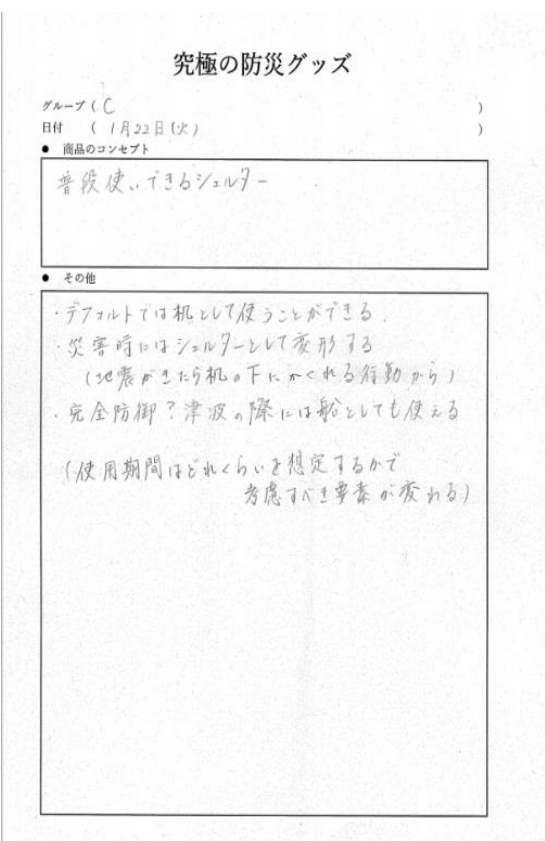 究極の防災グッズ
グループ ( C )
日付 ( 1月22日(火) )
● 商品のコンセプト
普段使いできるシェルター
● その他
・デフォルトでは机として使うことができる.
・災害時にはシェルターとして変形する
(地震がきたら机の下にかくれる行動から)
・完全防御?津波の際には船としても使える
(使用期間はどれくらいを想定するかで
考慮すべき要素が変わる)